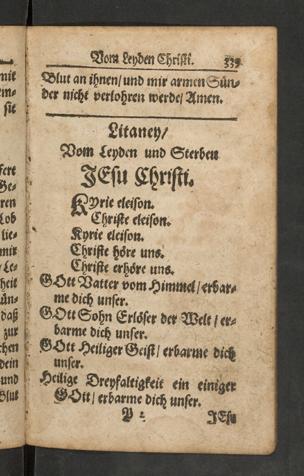 Vom Leyden Christi. 339
Blut an ihnen/ und mir armen Sün-
der nicht verlohren werde/ Amen.
Litaney/
Vom Leyden und Sterben
JEsu Christi.
Kyrie eleison.
Christe eleison.
Kyrie eleison.
Christe höre uns.
Christe erhöre uns.
GOtt Vatter vom Himmel/ erbar-
me dich unser.
GOtt Sohn Erlöser der Welt/ er-
barme dich unser.
GOtt Heiliger Geist/ erbarme dich
unser.
Heilige Dreyfaltigkeit ein einiger
GOtt/ erbarme dich unser.
P 2 JEsu